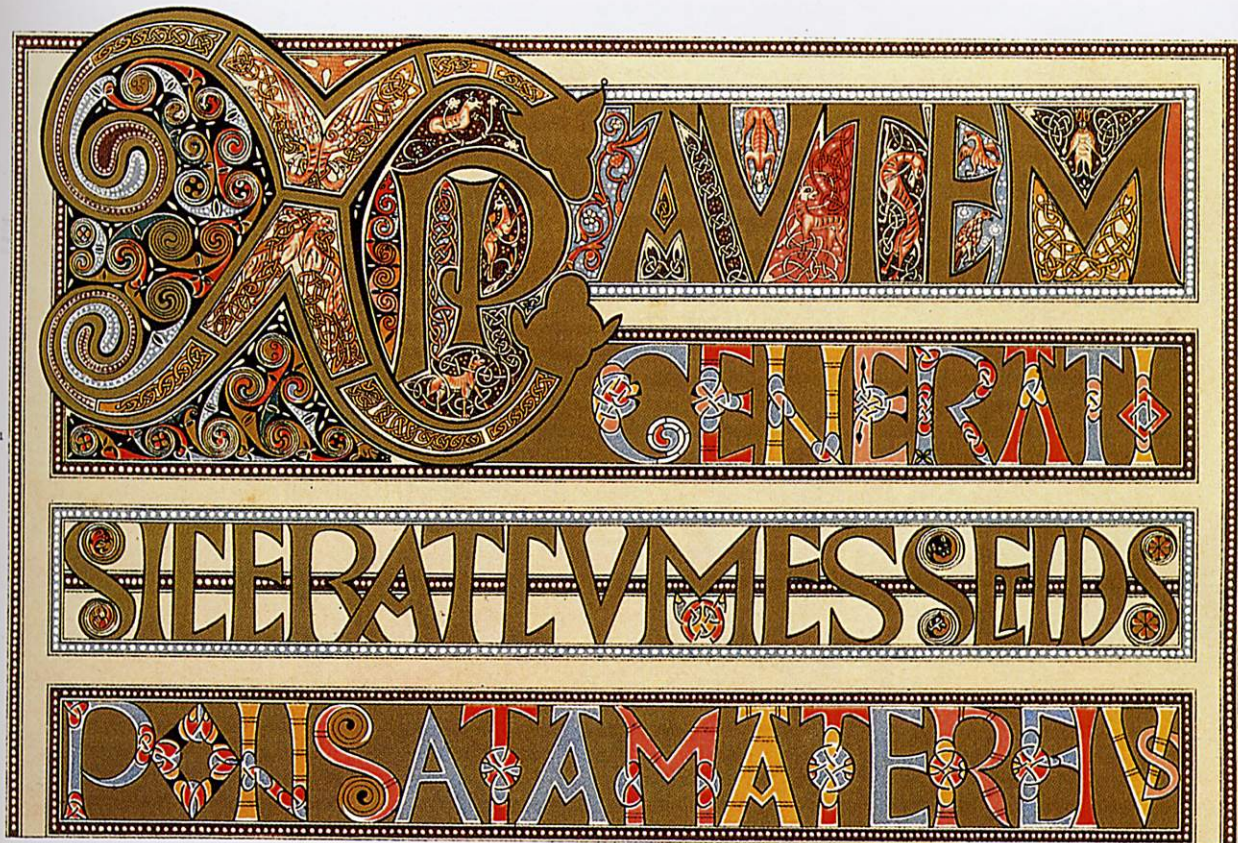 XPI AVTEM
GENERATIO
SICERATCVMESSETDIS
PONSATAMATEREIVS